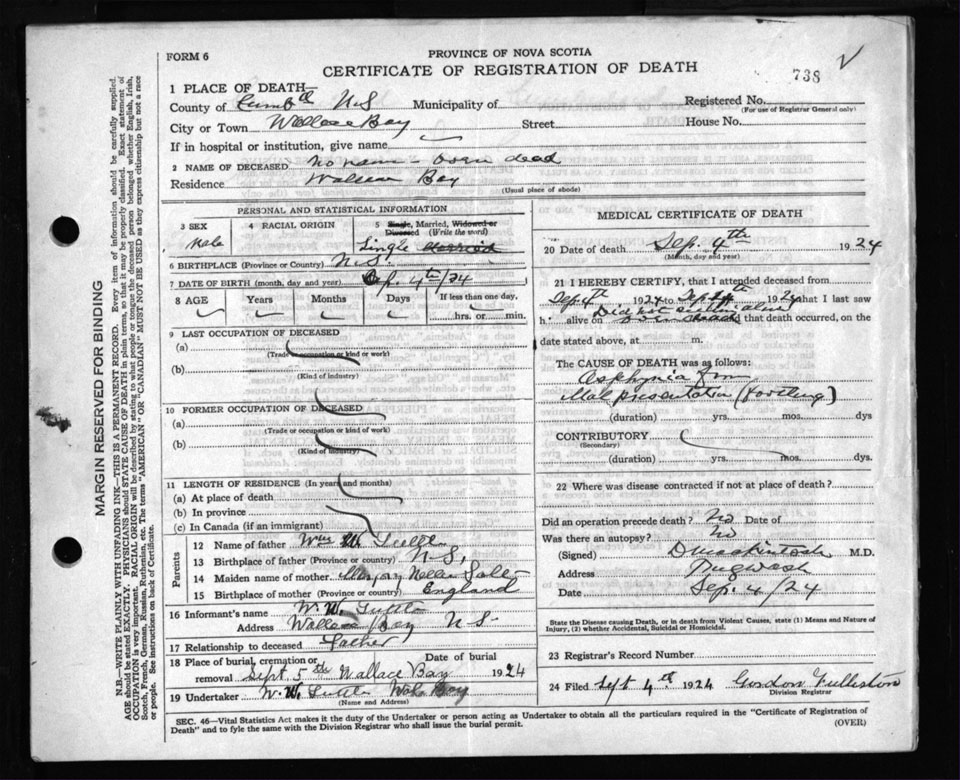 FORM 6
PROVINCE OF NOVA SCOTIA
CERTIFICATE OF REGISTRATION OF DEATH
738
1 PLACE OF DEATH—
County of Cumb'ld N-S Municipality of Registered No.
(For use of Registrar General only)
City or Town Wallace Bay Street House No.
If in hospital or institution, give name
2 NAME OF DECEASED No name – born dead
Residence Wallace Bay
(Usual place of abode)
PERSONAL AND STATISTICAL INFORMATION
3 SEX Male
4 RACIAL ORIGIN
5 Single, Married, Widowed or Divorced (Write the word) Single Married
6 BIRTHPLACE (Province or Country) N-S.
7 DATE OF BIRTH (month, day and year) Sep. 4th/24
8 AGE Years Months Days If less than one day, hrs. or min.
9 LAST OCCUPATION OF DECEASED
(a)
(Trade or occupation or kind or work)
(b)
(Kind of industry)
10 FORMER OCCUPATION OF DECEASED
(a)
(Trade or occupation or kind of work)
(b)
(Kind of industry)
11 LENGTH OF RESIDENCE (In years and months)
(a) At place of death
(b) In province
(c) In Canada (if an immigrant)
Parents
12 Name of father Wm W. Tuttle
13 Birthplace of father (Province or country) N-S,
14 Maiden name of mother Nellie
15 Birthplace of mother (Province or country) England
16 Informant's name W. W. Tuttle
Address Wallace Bay N-S-
17 Relationship to deceased Father
18 Place of burial, cremation or removal Date of burial
Sept 5th Wallace Bay 1924
19 Undertaker W. W. Tuttle Wale Bay
(Name and Address)
MEDICAL CERTIFICATE OF DEATH
20 Date of death Sep. 4th 1924
(Month, day and year)
21 I HEREBY CERTIFY, that I attended deceased from
Sep. 4th 1924 to Sep 4th 1924 that I last saw
h alive on Did not see him alive that death occurred, on the
date stated above, at m.
The CAUSE OF DEATH was as follows:
Asphyxia from
Mal presentation (footling)
(duration) yrs. mos. dys
CONTRIBUTORY
(Secondary)
(duration) yrs. mos. dys.
22 Where was disease contracted if not at place of death?
Did an operation precede death? No Date of
Was there an autopsy? No
(Signed) D Mackintosh M.D.
Address Pugwash
Date Sep. 4/24
State the Disease Causing Death, or in death from Violent Causes, state (1) Means and Nature of
Injury, (2) whether Accidental, Suicidal or Homicidal.
23 Registrar's Record Number
24 Filed Sept 4th 1924 Gordon
Division Registrar
SEC. 46—Vital Statistics Act makes it the duty of the Undertaker or person acting as Undertaker to obtain all the particulars required in the "Certificate of Registration of
Death" and to fyle the same with the Division Registrar who shall issue the burial permit.
(OVER)
MARGIN RESERVED FOR BINDING
N.B.—WRITE PLAINLY WITH UNFADING INK—THIS IS A PERMANENT RECORD. Every item of information should be carefully supplied.
AGE should be stated EXACTLY. PHYSICIANS should STATE CAUSE OF DEATH in plain terms, so that it may be properly classified. Exact statement of
OCCUPATION is very important. RACIAL ORIGIN will be described by stating to what people or tongue the deceased person belonged whether English, Irish,
Scotch, French, German, Russian, Ruthenian, etc. The terms "AMERICAN" OR "CANADIAN" MUST NOT BE USED as they express citizenship but not a race
or people. See instructions on back of Certificate.